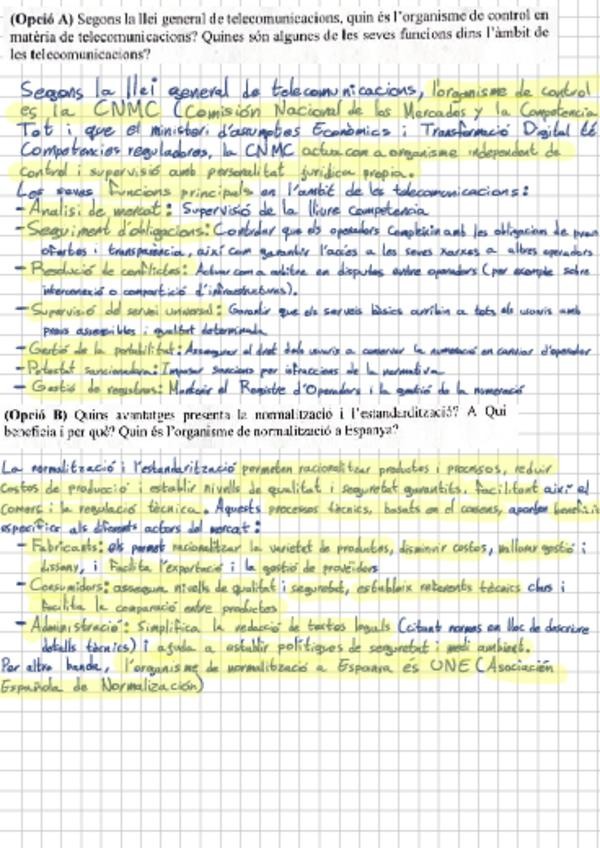 (Opció A) Segons la llei general de telecomunicacions, quin és l'organisme de control en
matèria de telecomunicacions? Quines són algunes de les seves funcions dins l'àmbit de
les telecomunicacions?
Segons la llei general de telecomunicacions, l'organisme de control
es la CNMC (Comisión Nacional de los Mercados y la Competencia
Tot i que el ministeri d'assumptes Econòmics i Transformació Digital té
Competencies reguladores, la CNMC actua com a organisme independent de
control i supervisió amb personalitat jurídica propia.
Les seves funcions principals en l'ambit de les telecomunicacions:
- Analisi de mercat: Supervisió de la lliure competencia
- Seguiment d'obligacions: Controlar que els operadors compleixin amb les obligacions de
ofertes i transparencia, així com garantir l'accés a les seves xarxes a altres operadors
- Resolució de conflictes: Actuar com a arbitre en disputes entre operadors (per exemple sobre
interconexió o compartició d'infraestructures).
- Supervisió del servei universal: Garantir que els serveis bàsics arribin a tots els usuaris amb
preus assequibles i qualitat determinada
- Gestió de la portabilitat: Assegurar el dret dels usuaris a conservar la numeració en canviar d'operador
- Potestat sancionadora: Imposar sancions per infraccions de la normativa
- Gestió de registres: Mantenir el Registre d'Operadors i la gestió de la numeració
(Opció B) Quins avantatges presenta la normalització i l'estandardització? A Qui
beneficia i per què? Quin és l'organisme de normalització a Espanya?
La normalització i l'estandarització permeten racionalitzar productes i processos, reduir
costos de producció i establir nivells de qualitat i seguretat garantits, facilitant així el
comerç i la regulació tècnica. Aquests processos tècnics, basats en el consens, aporten
específics als diferents actors del mercat:
- Fabricants: els permet racionalitzar la varietat de productes, disminuir costos, millorar gestió i
disseny, i facilita l'exportació i la gestió de proveïdors
- Consumidors: assegura nivells de qualitat i seguretat, estableix referents tècnics clars i
facilita la comparació entre productes
- Administració: Simplifica la redacció de textos legals (citant normes en lloc de descriure
detalls tècnics) i ajuda a establir polítiques de seguretat i medi ambient.
Per altra banda, l'organisme de normalització a Espanya és UNE (Asociación
Española de Normalización)